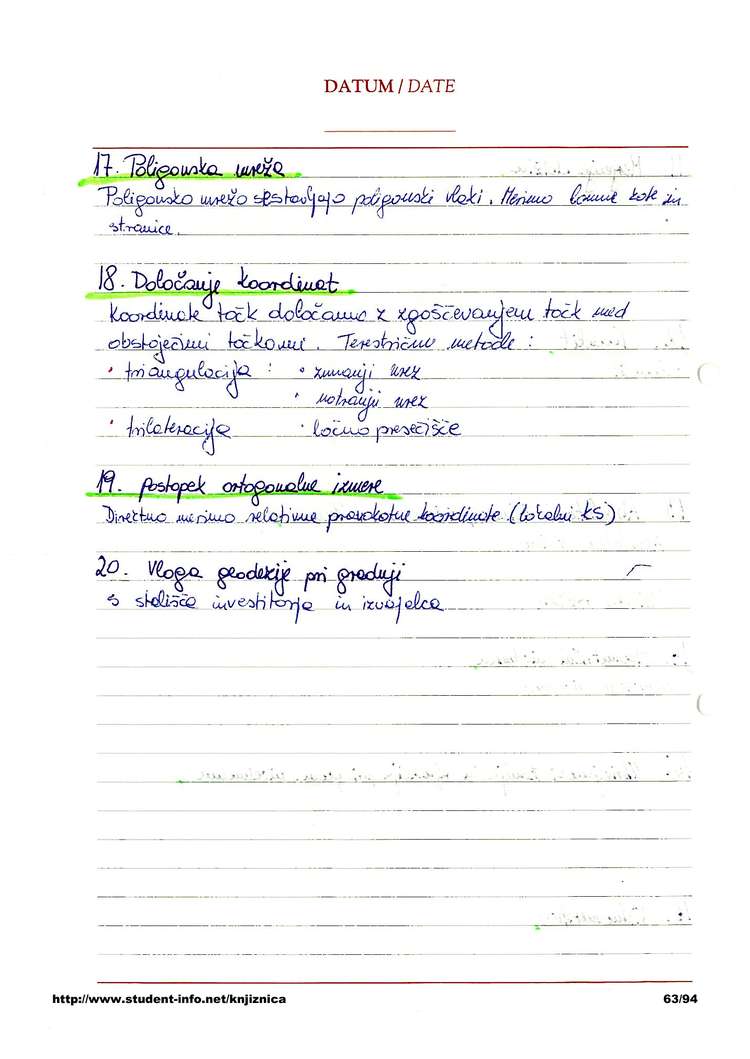 DATUM / DATE
17. Poligonska mreža
Poligonsko mrežo sestavljajo poligonski vlaki. Merimo lomne kote in
stranice.
18. Določanje koordinat
Koordinate točk določamo z zgoščevanjem točk med
obstoječimi točkami. Terestrične metode:
• triangulacija: • zunanji urez
• notranji urez
• trilateracija • ločno presečišče
19. Postopek ortogonalne izmere
Direktno merimo relativne pravokotne koordinate (lokalni KS)
20. Vloga geodezije pri gradnji
s stališča investitorja in izvajalca
http://www.student-info.net/knjiznica 63/94